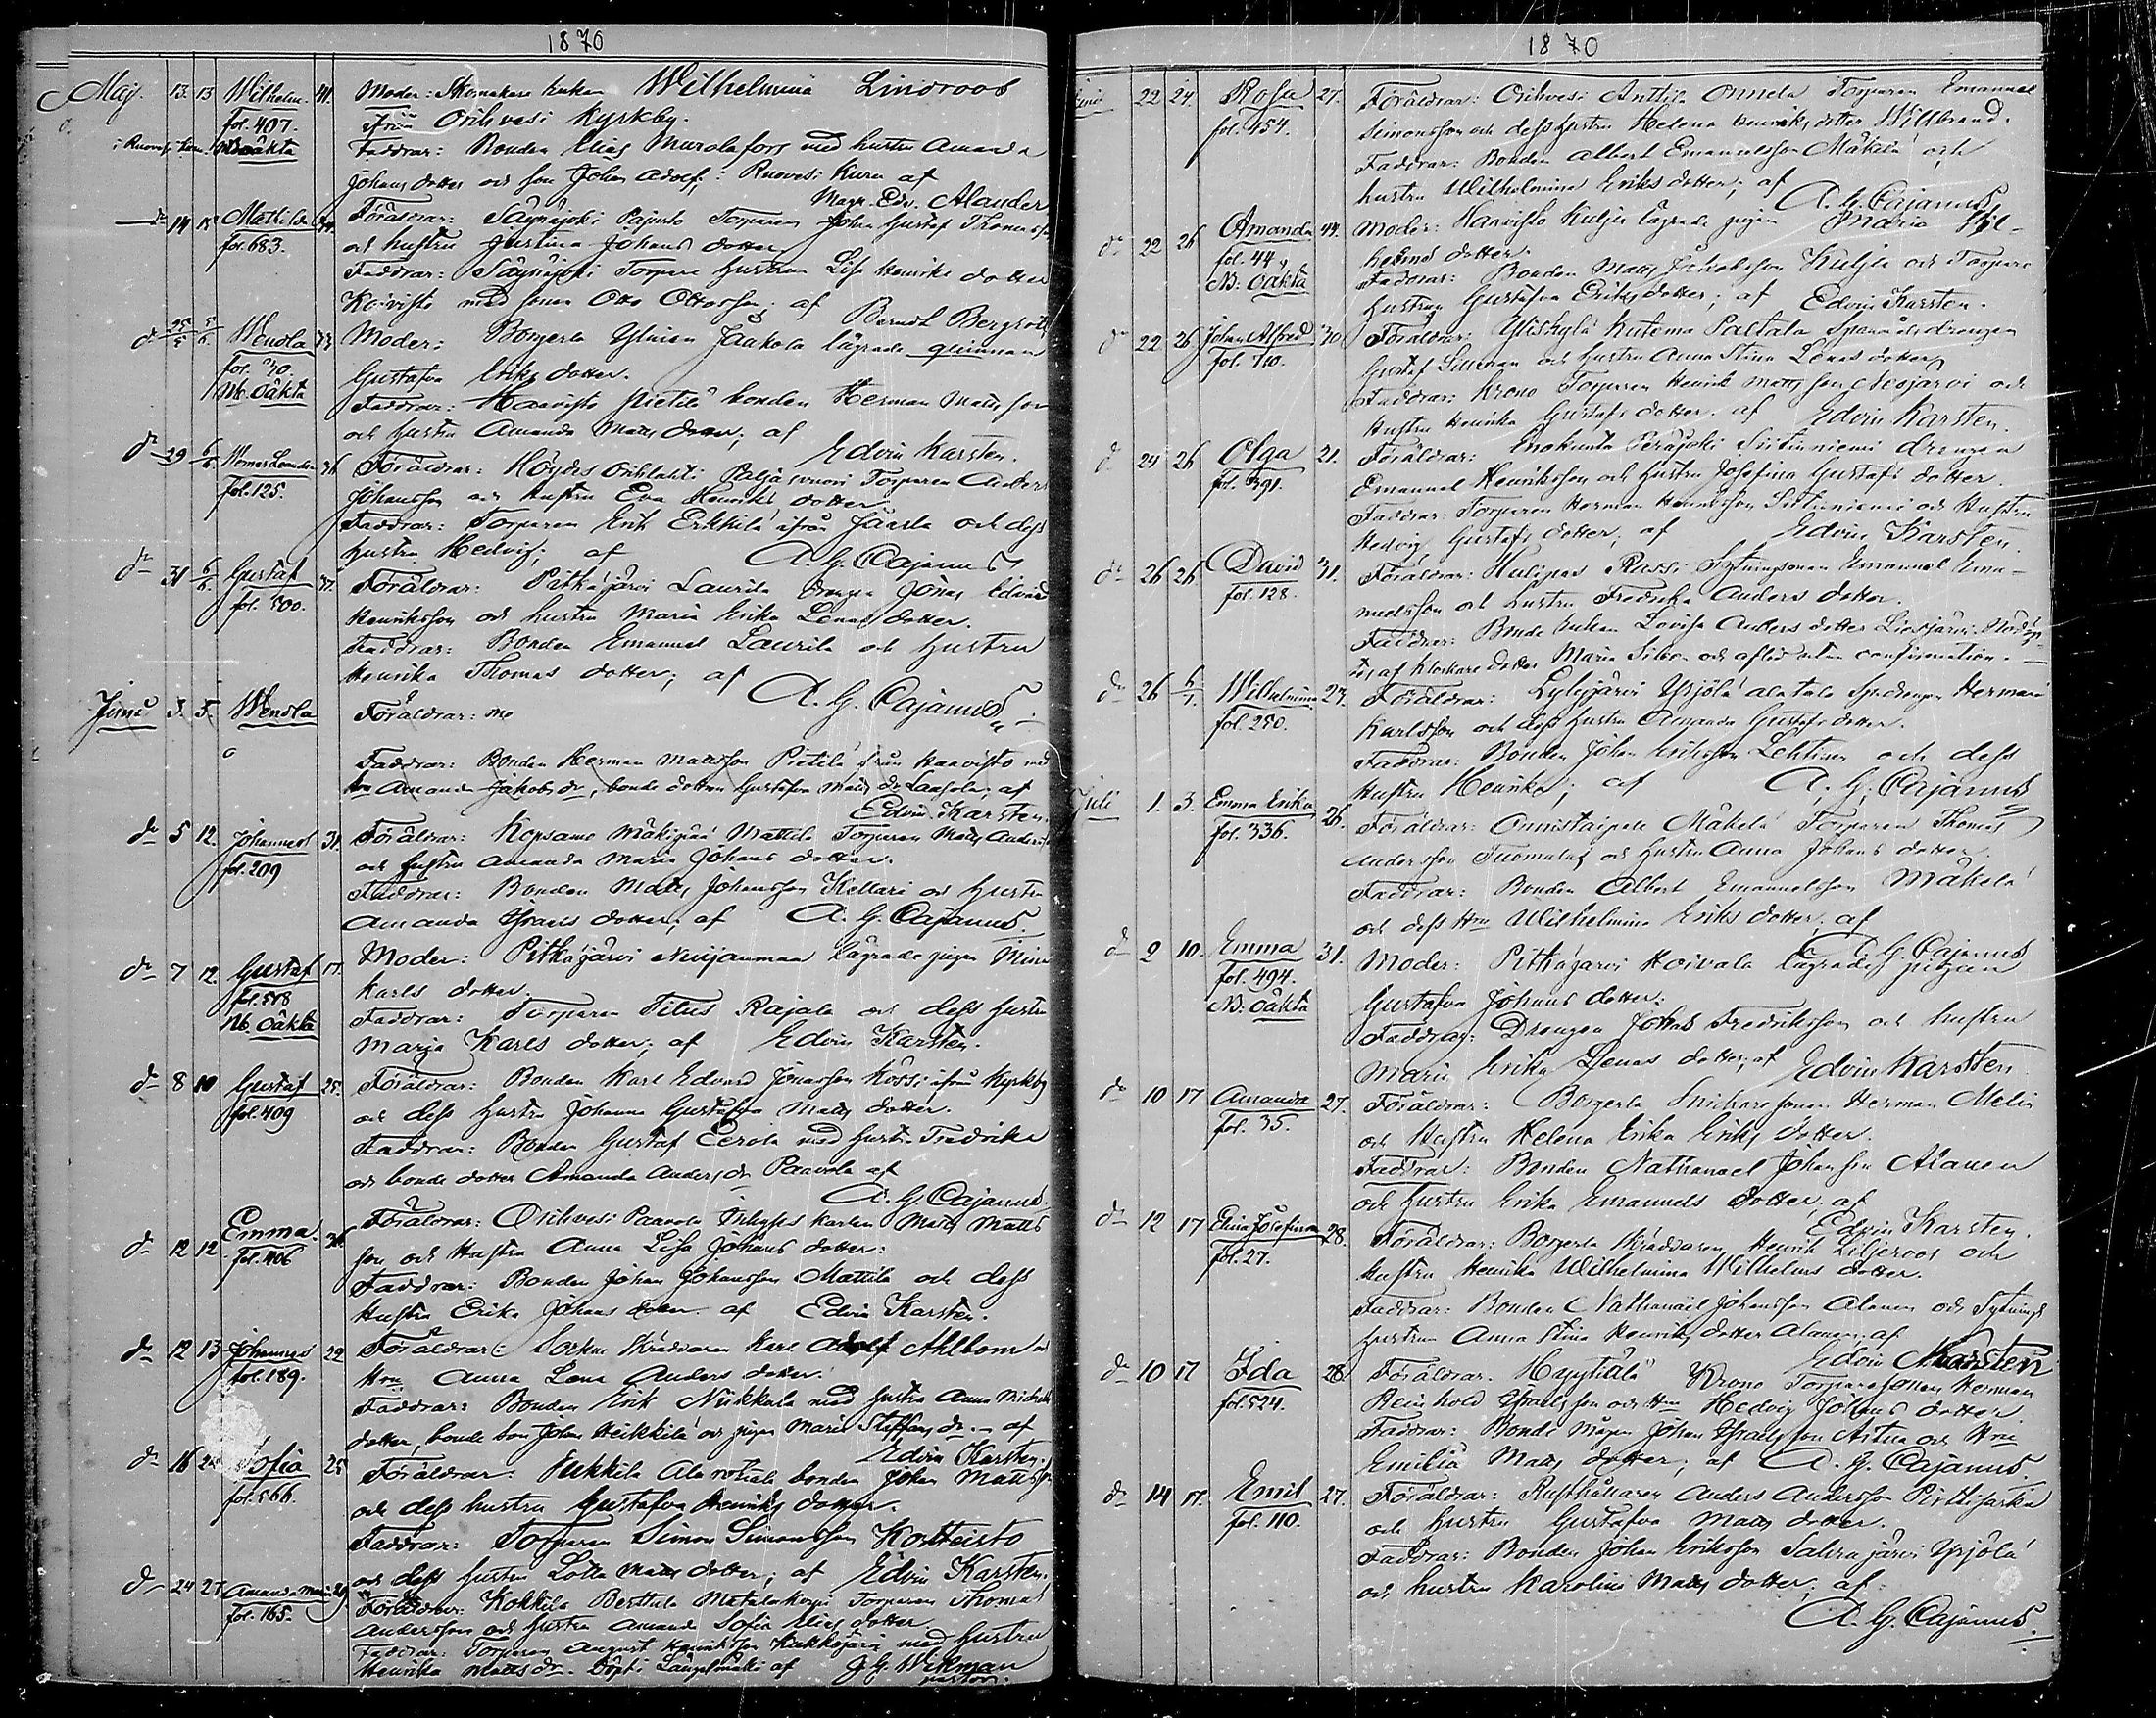 1870
Maj. 13. 13 Wilhelm. 41. Moder: Skomakare enkan Wilhelmina Lindroos
fol. 407. från Orihvesi Kyrkby.
oäkta Faddrar: Bonden Elias Murolafors med hustru Amanda
Johans dotter och son Johan Adolf; i Ruovesi Kuru af
Magr. Edv. Alander
dn 14 15 Mathilda Föräldrar: Säynäjoki Torparen Johan Gustaf Thomasson
fol. 683. och hustru Justina Johans dotter
Faddrar: Säynäjoki Torpare hustrun Lisa Henriks dotter
Koivisto med sonen Otto Ottosson; af
Berndt Bergroth
dn 25/5 5/6 Wendla 33 Moder: Borgerla Ylinen Jaakola lägrade qvinnan
fol. 20. Gustafva Eriks dotter.
Nb. Oäkta Faddrar: Haavisto Pietilä bonden Herman Mattsson
och hustru Amanda Matts dotter; af
Edvin Karsten.
dn 29 6/6 36 Föräldrar: Torparen Anders
fol. 125. Johansson och hustru Eva Henriks dotter
Faddrar: Torparen Erik Erkkilä ifrån och dess
hustru Hedvig; af A. G. Cajanus
dn 31 6/6 Gustaf 37. Föräldrar: Pitkäjärvi Laurila drengen Jonas Edvard
fol. 500. Henriksson och hustru Maria Erika Lenas dotter.
Faddrar: Bonden Emanuel Laurila och hustru
Henrika Thomas dotter; af
A. G. Cajanus
Juni 3. 5. Wendla Föräldrar:
Faddrar: Bonden Herman Mattsson Pietilä från Haavisto med
hru Amanda Jakobs dr, bonde dottern Gustafva Matts dr; af
Edvin Karsten.
dn 5 12. Johannes 31. Föräldrar: Kopsamo Mäkipää Mattila Torparen Matts Andersson
fol. 209 och hustru Amanda Maria Johans dotter.
Faddrar: Bonden Matts Johansson Kellari och hustru
Amanda dotter; af A. G. Cajanus.
dn 7 12. Gustaf 17. Moder: Pitkäjärvi lägrade pigan Mina
fol. 518 Karls dotter.
Nb. Oäkta Faddrar: Torparen Titus Rajala och dess hustru
Maria Karls dotter; af Edvin Karsten.
dn 8 10 Gustaf 25. Föräldrar: Bonden Karl Edvard Jonasson Kössi ifrån Kyrkby
fol. 409 och dess hustru Johanna Gustafva Matts dotter.
Faddrar: Bonden Gustaf Eerola med hustru Fredrika
och bonde dotter Amanda Anders dr Paavola af
A. G. Cajanus.
dn 12 12 Emma. Föräldrar: Orihvesi Paavola Inhyses karlen Matts Matts
fol. 406 son och Hustru Anna Lisa Johans dotter:
Faddrar: Bonden Johan Johansson Mattila och dess
Hustru Erika Johans dotter af Edvin Karsten.
dn 12 13 Johannes 29 Föräldrar: Skräddaren Karl Adolf Ahlbom och
fol. 189. Hru Anna Lena Anders dotter.
Faddrar: Bonden Erik Nikkola med hustru Anna Michels
dotter, bonde son Johan Heikkilä och pigan Maria Steffans dr. - af
Edvin Karsten.
dn 16 Sofia 25 Föräldrar: Pukkila Ala bonden Johan Mattsson
fol. 566. och dess hustru Gustafva Henriks dotter.
Faddrar: Torparen Simon Simonsson Kortteisto
och dess hustru Lotta Matts dotter; af Edvin Karsten.
dn 24 25 Amanda Maria 29 Föräldrar: Kokkila Perttula Metsäkorpi Torparen Thomas
fol. 165. Andersson och hustru Amanda Sofia Elias dotter
Faddrar: Torparen August Henriksson med hustru
Henrika Matts dr. Döpt i Längelmäki af J. G. Wikman
pastor.
1870
Juni 22 24. Rosa 27. Föräldrar: Orihvesi Anttila Onnela Torparen Emanuel
fol. 454. Simonsson och dess hustru Helena Henriks dotter Willbrand.
Faddrar: Bonden Albert Emanuelsson Mäkelä och
hustru Wilhelmina Eriks dotter; af
A. G. Cajanus
dn 22 26 Amanda 44. Moder: Haavisto Kulju lägrade pigan Maria Wil-
fol. 44 helms dotter
Nb: Oäkta Faddrar: Bonden Matts Jakobsson Kulju och Torpare
hustrun Gustafva Eriks dotter; af Edvin Karsten.
dn 22 26 Johan Alfred 30. Föräldrar: Yliskylä Kutema Paltala
fol. 710. Gustaf och hustru Anna Stina Lenas dotter
Faddrar: Krono Torparen Henrik Mattsson och
Hustru Henrika Gustafs dotter. af Edvin Karsten.
dn 24 26 Olga 21. Föräldrar: Enokunta Peräjoki Siitinniemi drengen
fol. 391. Emanuel Henriksson och hustru Josefina Gustafs dotter.
Faddrar: Torparen Herman Henriksson Siitinniemi och Hustru
Hedvig Gustafs dotter, af Edvin Karsten.
dn 26 26 David 31. Föräldrar: Hulippas Rassi Sytningsman Emanuel Ema-
fol. 128. nuelsson och hustru Fredrika Anders dotter.
Faddrar: Bonde enkan Lovisa Anders dotter. Nödöp-
tes af klockare dotter Maria och afled utan confirmation. -
dn 26 6/7. Wilhelmina 27. Föräldrar: Lyllyjärvi Yrjölä Alatalo Herman
fol. 250. Karlsson och dess hustru Amanda Gustafs dotter.
Faddrar: Bonden Johan Eriksson Lehtinen och dess
Hustru Henrika; af A. G. Cajanus
Juli 1. 3. Emma Erika 26. Föräldrar: Onnistaipale Mäkelä Torparen Thomas
fol. 336. Andersson Tuomela och hustru Anna Johans dotter.
Faddrar: Bonden Albert Emanuelsson Mäkelä
och dess Hru Wilhelmina Eriks dotter; af
A. G. Cajanus
dn 2 10. Emma 31. Moder: Pitkäjärvi Hoivala lägrade pigan
fol. 494. Gustafva Johans dotter:
Nb: Oäkta Faddrar: Drengen Jonas Fredriksson och hustru
Maria Erika Lenas dotter; af Edvin Karsten
dn 10 17 Amanda 27. Föräldrar: Borgerla Snickaresonen Herman Melin
fol. 35. och Hustru Helena Erika Eriks dotter.
Faddrar: Bonden Nathanael Johansson Alanen
och hustru Erika Emanuels dotter; af
Edvin Karsten.
dn 12 17 Elina Josefina 28. Föräldrar: Borgerla Skräddaren Henrik Liljeroos och
fol. 27. Hustru Henrika Wilhelmina Wilhelms dotter.
Faddrar: Bonden Nathanael Johansson Alanen och Sytnings
hustrun Anna Stina Henriks dotter Alanen; af
Edvin Karsten
dn 10 17 Ida 28. Föräldrar. Krono Torparesonen Herman
fol. 524. Reinhold och Hru Hedvig Johans dotter.
Faddrar: Bonde mågen Johan och Hru
Emilia Matts dotter; af A. G. Cajanus.
dn 14 17. Emil 27. Föräldrar: Rusthållaren Anders Andersson Pirttijärvi
fol. 110. och hustru Gustafva Matts dotter.
Faddrar: Bonden Johan Eriksson Sahrajärvi Yrjölä
och hustru Karolina Matts dotter; af
A. G. Cajanus.